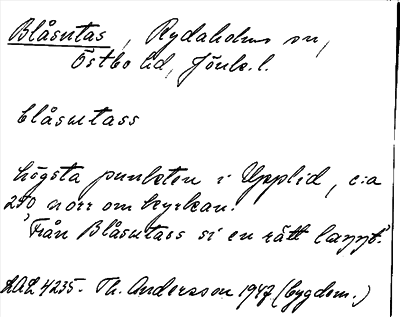 Blåsutas, Rydaholms sn,
Östbo hd, Jönk. l.
blåsutass
högsta punkten i Upplid, c:a
200 norr om kyrkan.
"Från Blåsutass si en rätt langt."
ULL 4235. Th. Andersson 1947 (bygdem.)